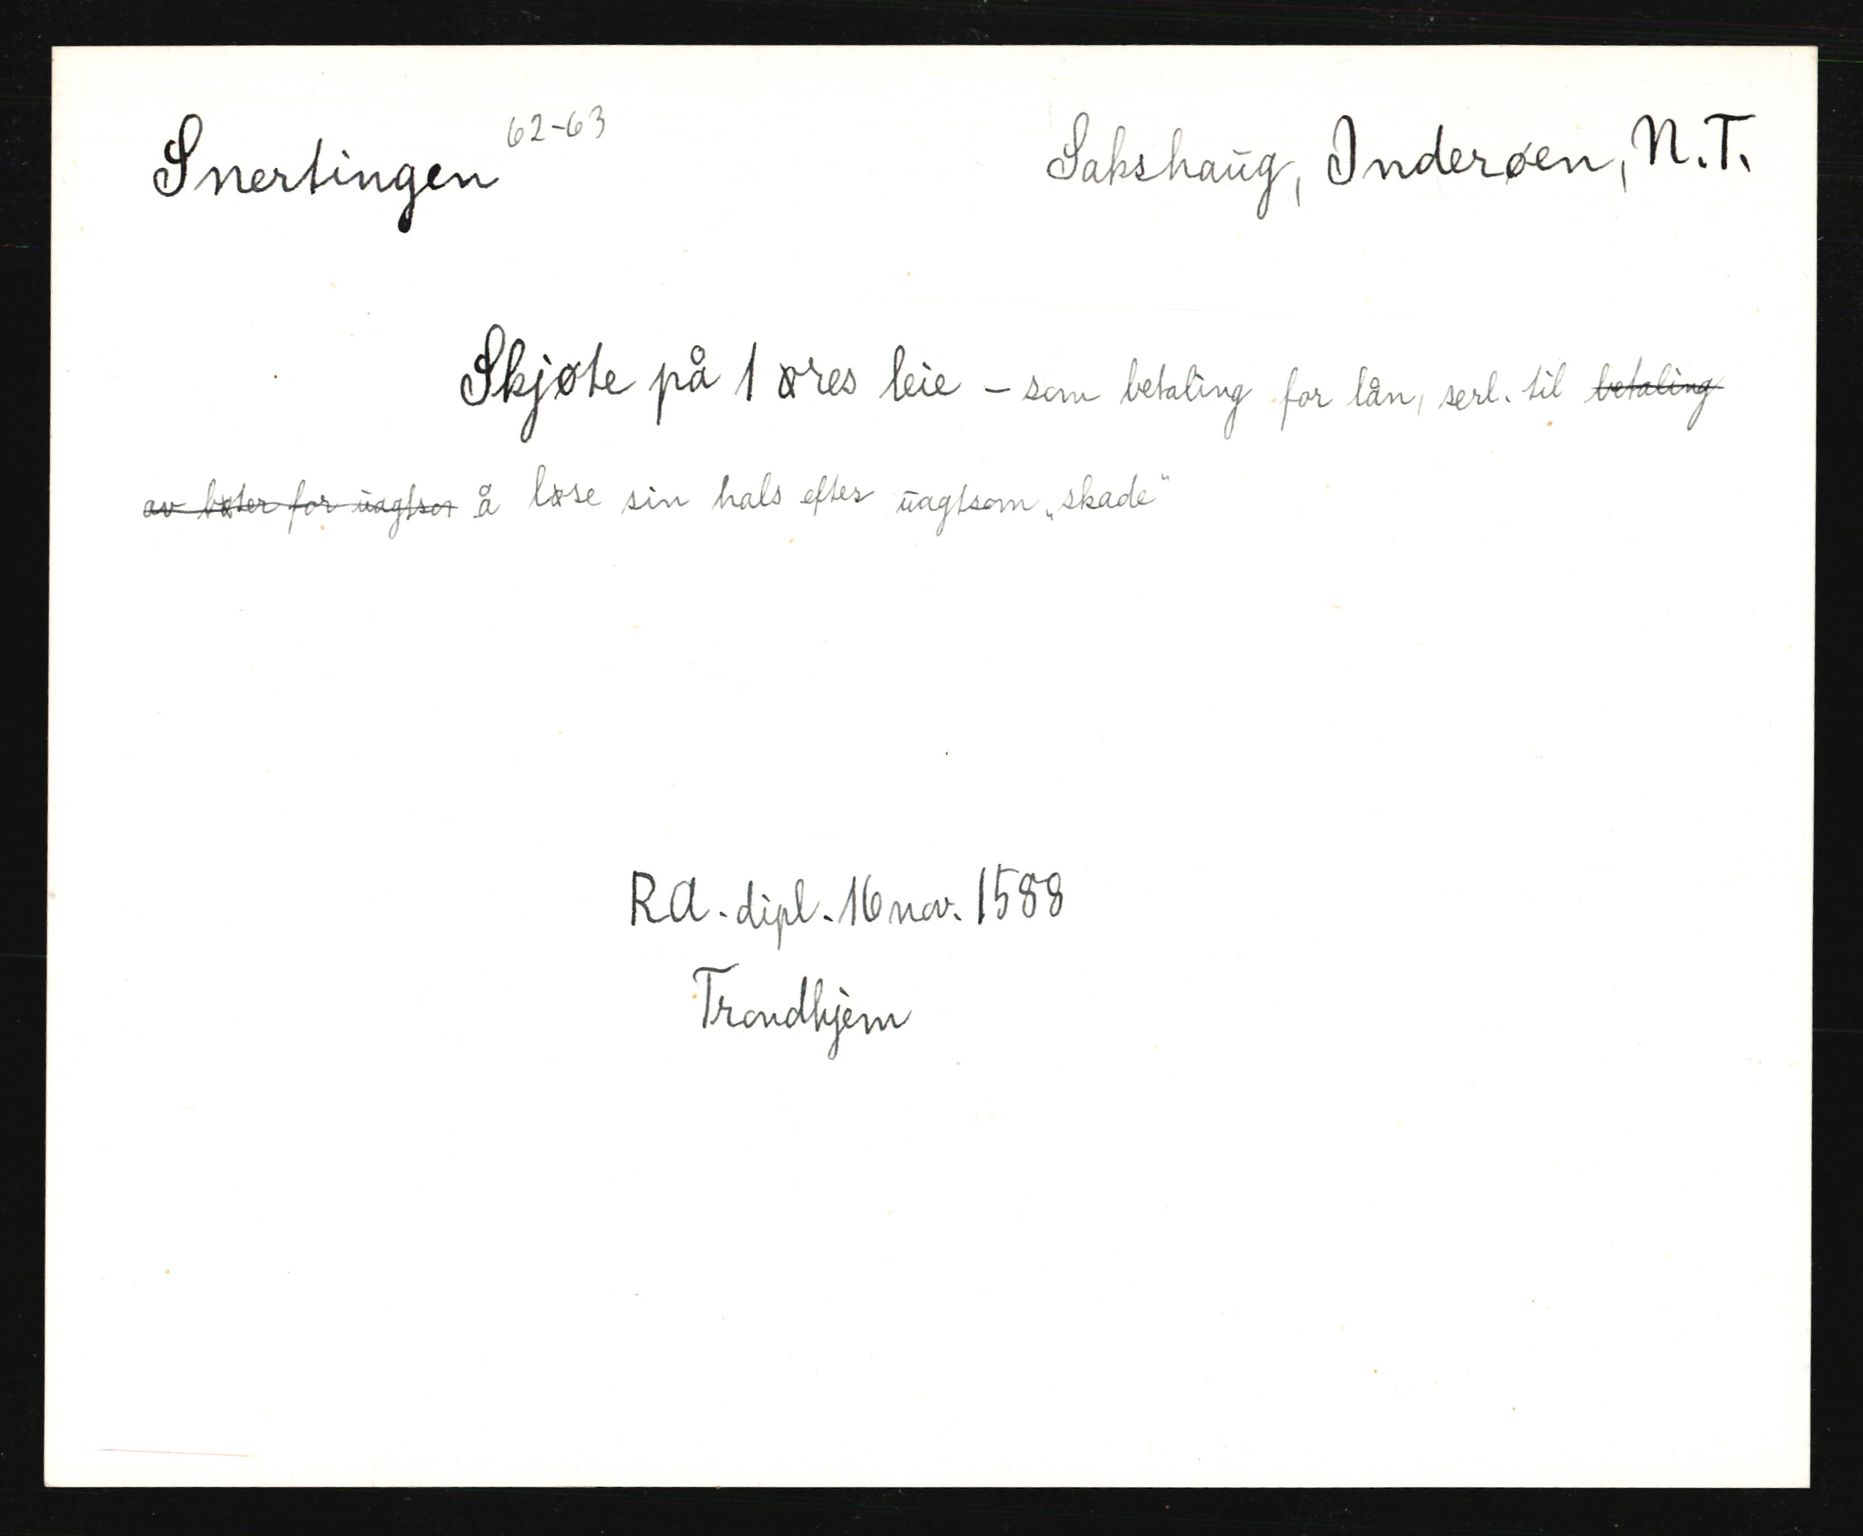 Snertingen 62-63 Sakshaug, Inderøen, N.T.
Skjøte på 1 øres leie – som betaling for lån, serl. til betaling
av bøter for uagtsom å løse sin hals efter uagtsom „skade“
RA. dipl. 16 nov. 1588
Trondhjem